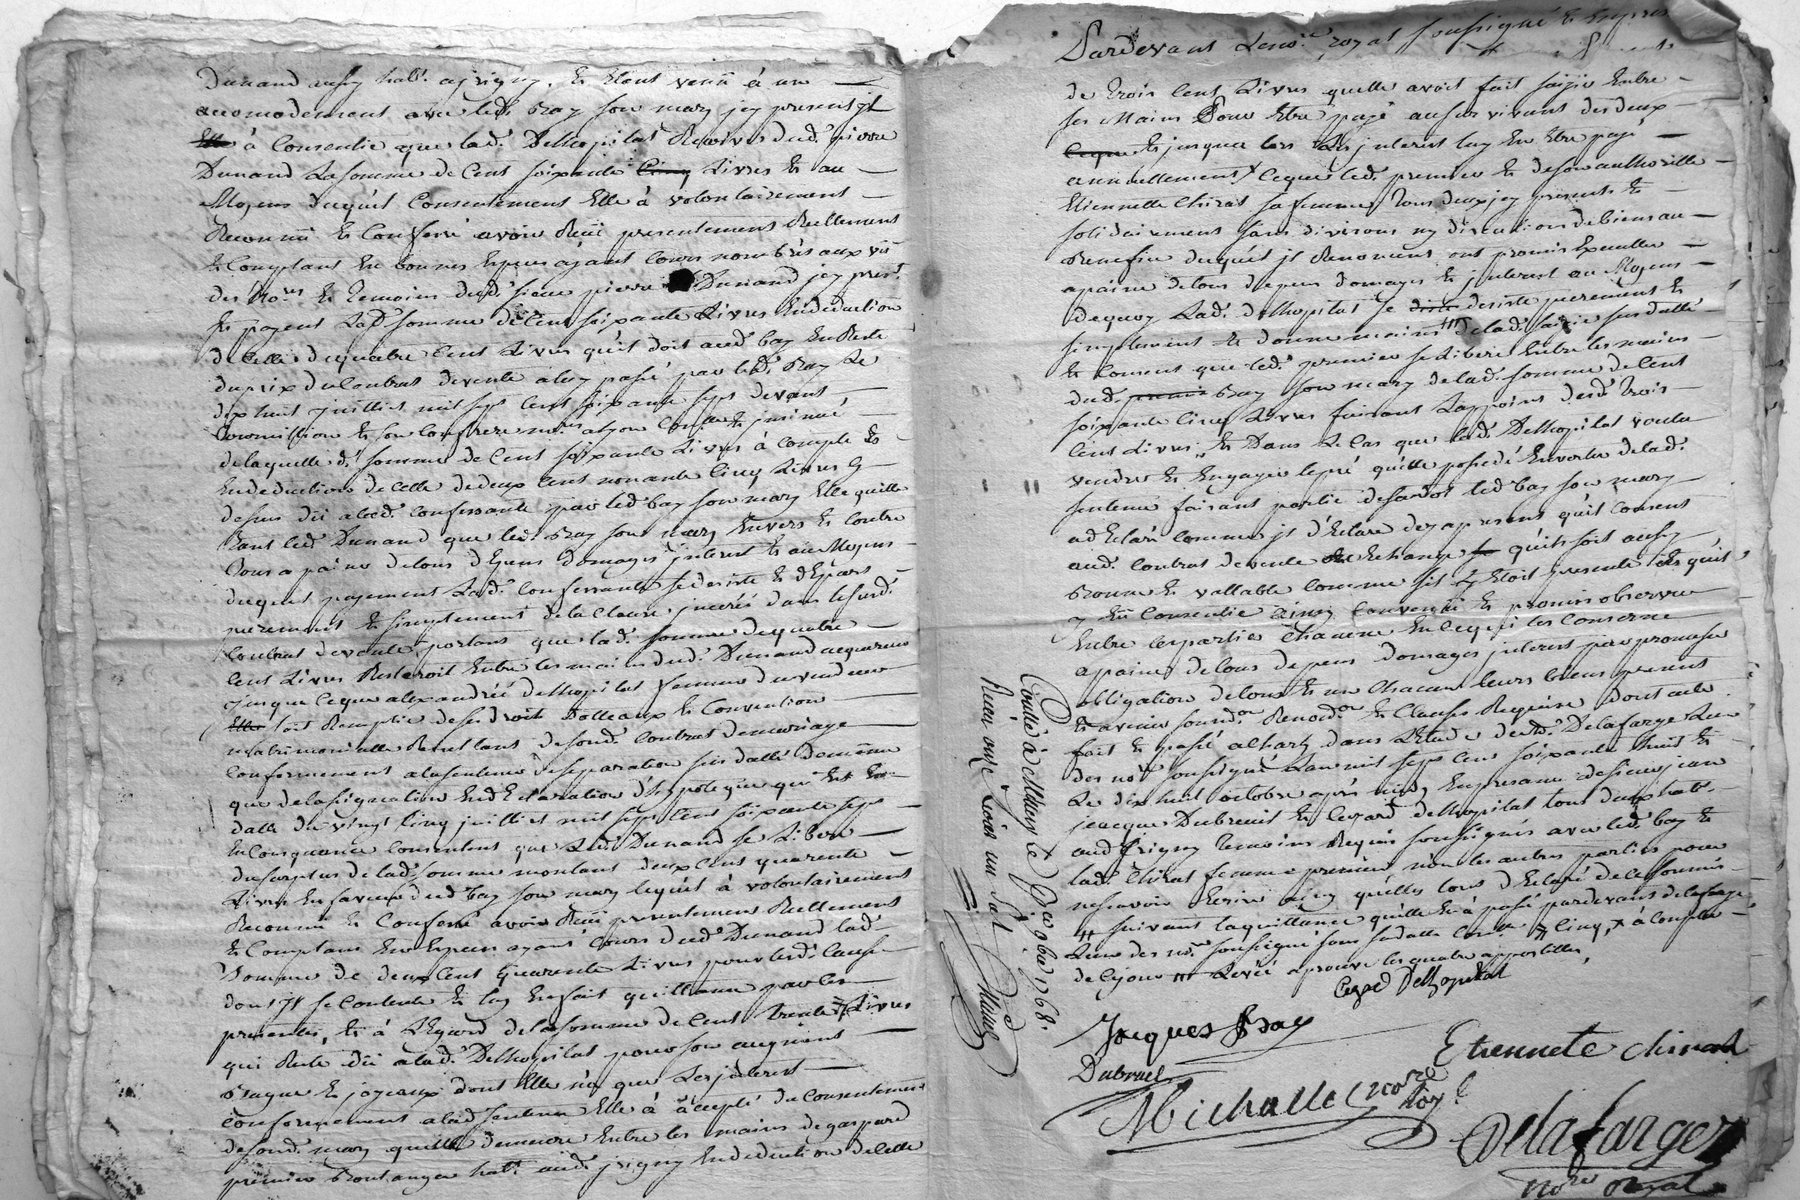 Dunand aussy habt. a jrigny, Et Etant venü à un
accomodement avec ledt Bay son mary jcy present jl
à Consentie que lad. Delhopital Recoive dud. pierre
Dunand La somme de Cent soixante Livres Et au
Moyens duquel Consentement Elle à volontairement
Reconnü Et Confessé avoir Reçü presentement Reellement
Et Comptant En bonnes Especes ayant Cours nombrés aux vû
des No.res Et Temoins dud. sieur pierre Dunand jcy prest.
Et payant Lad. somme de Cent soixante Livres En deduction
de Celle de quatre Cent Livres qu'il doit aud. bay En Reste
du prix du Contrat de vente à luy passé par led. Bay Le
dix huit juilliet mil sept Cent soixante sept devant
Commission Et son Confrere no.res a Lyon
de laquelle d. somme de Cent soixante Livres à Compte Et
En deduction de Celle de deux Cent nonante Cinq Livres
dessus dû a lad. Confessante par led. bay son mary Elle quitte
tant led. Dunand que led. Bay son mary Envers Et Contre
Tous a paine de tous depens domages jnterest Et au Moyens
duquel payement Lad. Confessante se desiste Et depars
purement Et simplement de la Clause jnserés dans le susd.
Contrat de vente, portant que lad. somme de quatre
Cent Livres Resteroit Entre les mains dud. Dunand acquereur
jusque ceque alexandrée Delhopital femme du vendeur
soit Remplie de ses droits dotteaux Et Convention
matrimonialle Resultant de son d. Contrat de mariage
Conformement a la sentence de separation sus datté
que de la signiation En declaration d'hypoteque qui Est En
datte du vingt Cinq juilliet mil sept Cent soixante sept
En Consquance Consentent que Led. Dunand se Libere
du surplus de lad. somme montant deux Cent quarente
Livres En faveur dud. bay son mary lequel à volontairement
Reconnu Et Confessé avoir Reçü presentement Reellement
Et Comptant En Especes ayant Cours dud. Dunand lad.
Somme de deux Cent quarente Livres pour les d. Cause
dont jl se Contente Et luy En fait quittance par Ces
presentes, Et à L'Egard de la somme de Cent trente Livres
qui Reste dû a lad. Delhopital pour son augment
Bague Et joyeaux dont Elle n'a que Les jnterest
Conformement a lad. sentence Elle à accepté du Consentement
de son d. mary qu'elle demeure Entre les mains de gaspard
premier Boulanger habt. aud. jrigny En deduction de Celle
Pardevant Le no.re royal soussigné Et En pres
de trois Cent Livres quelle avoit fait saisir Entre
ses Mains Pour Etre payé au survivant des deux
Et jusque lors Les jnterest luy En Etre payé
annuellement ceque led. premier Et de son authorité
Etiennette Chirat sa femme Tous deux jcy presents Et
solidairement sans division ny discution de biens au
Benefice duquel jls Renoncent ont promis Executter
a paine de tous depens domages Et jnterest au Moyens
de quoy Lad. Delhopital se desiste purement Et
simplement Et donne mainlevée de lad. saisie sus datté
Et Consent que led. premier se libere Entre les mains
dud. Bay son mary de lad. somme de Cent
soixante Cinq Livres faisant Lappoint desd. trois
Cent Livres, Et Dans Le Cas que lad. Delhopital voulu
vendre Et Engager le pré qu'elle possedé En vertu de lad.
sentence faisant partie de sa dot led. bay son mary
a declaré Comme jl declare dez apresent qu'il Consent
aud. Contrat de vente Echange qu'ils soit aussy
Bonne Et vallable Comme sil y Etoit presente Et qu'il
y Eü Consentie Ainsy Convenüe Et promis observer
Entre les partie Chacune En Cequi les Conserne
a paines de tous depens domages jnterest par promesse
obligation de tous Et un Chacun leurs biens present
Et avenir soumd.on Renond.on Et Clauses Requise, dont acte
fait Et passé a Charly dans L'Etude de M.e Delafarge Lun
des no.res soussigné L'an mil sept Cent soixante huit Et
Le dix huit octobre après midy En presance de sieur jean
jacque Dubreuil Et Cezard Delhopital tous deux habt.
aud. jrigny temoins Requis soussignés avec led. bay Et
lad. Chirat femme premier non les autres parties pour
ne scavoir Ecrire ainsy qu'elles tous declaré de Ce sommés
# suivant la quittance quelle En à passé pardevant delafarge
L'un des no.res soussigné sous sa datte Cinq, + à Compter
de Cejour levée aprouvé les quatre appostilles,
Cezard Delhopital
Jacques Bay
Etiennete Chirat
Dubreuil
Michallet no.re roy.l
Delafarge
no.re royal
Conllé à Millery Le 9bre 1768.
Recu onze Livres un sol